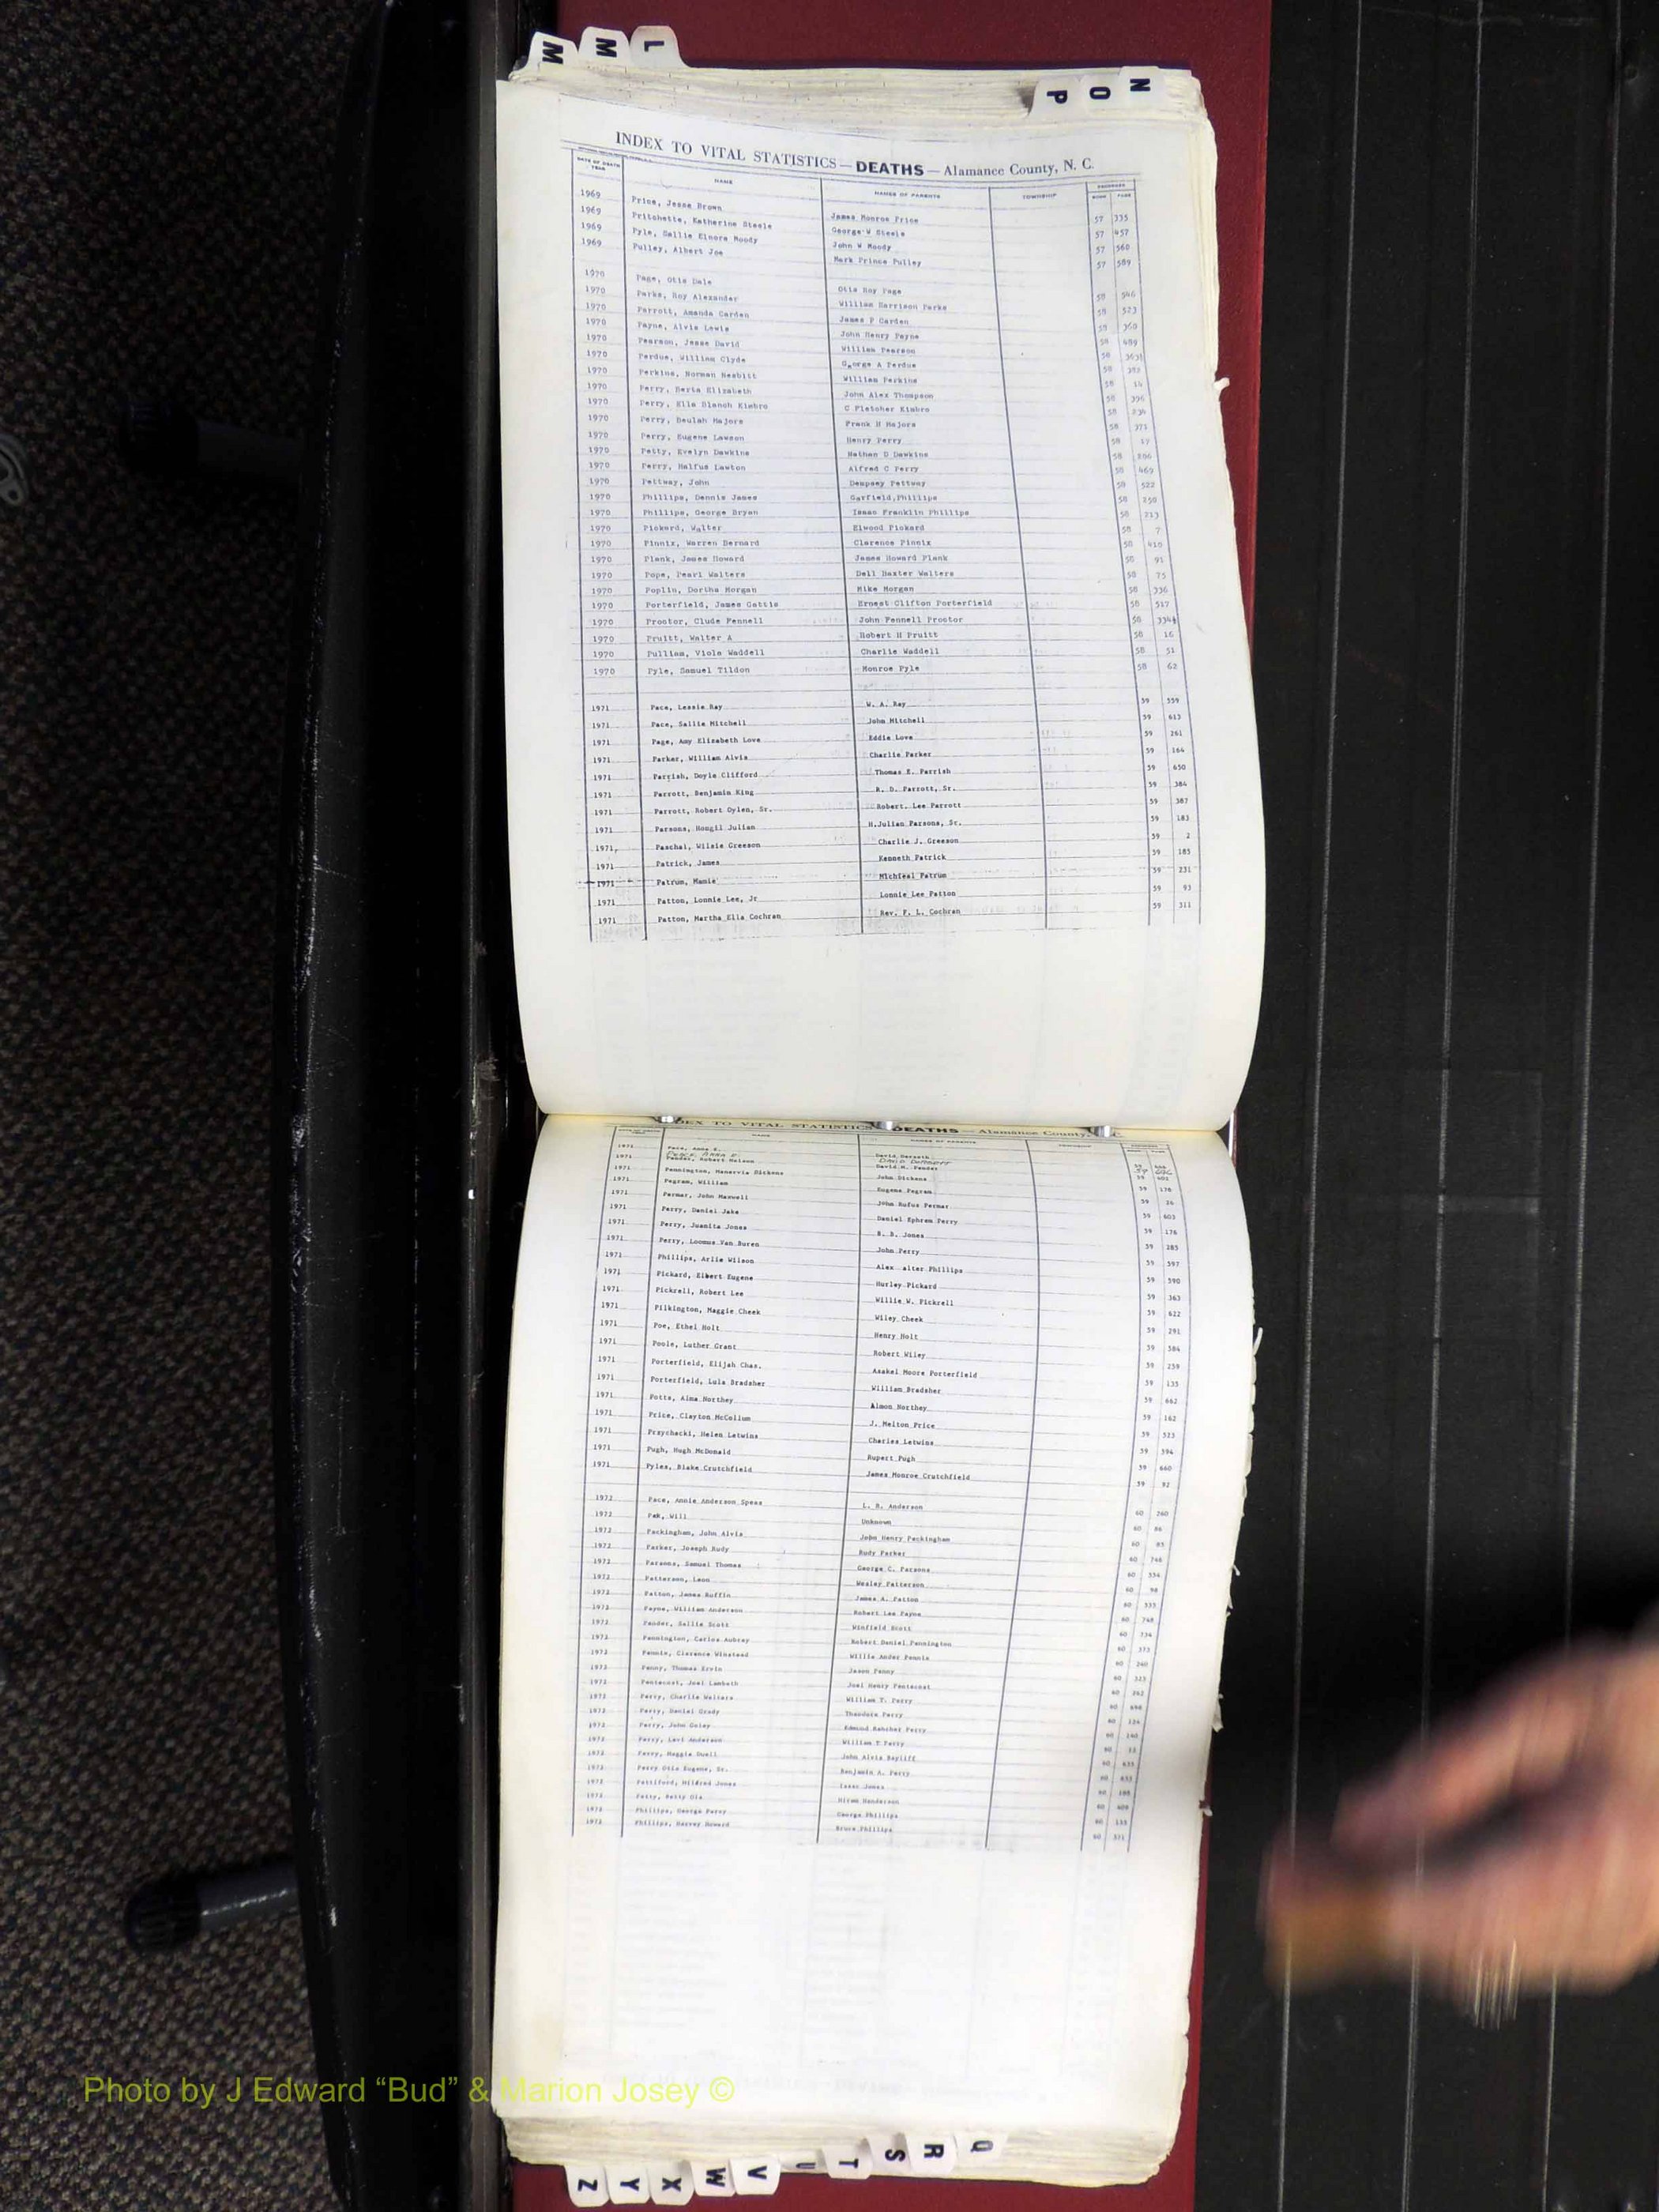 M M L
N O P
INDEX TO VITAL STATISTICS — DEATHS — Alamance County, N. C.
DATE OF DEATH YEAR NAME NAMES OF PARENTS TOWNSHIP BOOK PAGE
1969 Price, Jesse Brown James Monroe Price 57 335
1969 Pritchette, Katherine Steele George W Steele 57 457
1969 Pyle, Sallie Elnora Moody John W Moody 57 560
1969 Pulley, Albert Joe Mark Prince Pulley 57 589
1970 Page, Otis Dale Otis Roy Page 58 546
1970 Parks, Roy Alexander William Harrison Parks 58 523
1970 Parrott, Amanda Carden James P Carden 58 360
1970 Payne, Alvis Lewis John Henry Payne 58 489
1970 Pearson, Jesse David William Pearson 58
1970 Perdue, William Clyde George A Perdue 58
1970 Perkins, Norman Nesbitt William Perkins 58 14
1970 Perry, Berta Elizabeth John Alex Thompson 58 396
1970 Perry, Ella Blanch Kimbro C Fletcher Kimbro 58 234
1970 Perry, Beulah Majors Frank H Majors 58 371
1970 Perry, Eugene Lawson Henry Perry 58 17
1970 Petty, Evelyn Dawkins Nathan D Dawkins 58
1970 Perry, Halfus Lawton Alfred C Perry 58 469
1970 Pettway, John Dempsey Pettway 58 522
1970 Phillips, Dennis James Garfield Phillips 58 250
1970 Phillips, George Bryan Isaac Franklin Phillips 58 213
1970 Pickard, Walter Elwood Pickard 58 7
1970 Pinnix, Warren Bernard Clarence Pinnix 58 410
1970 Plank, James Howard James Howard Plank 58 91
1970 Pope, Pearl Walters Dell Baxter Walters 58 75
1970 Poplin, Dortha Morgan Mike Morgan 58 336
1970 Porterfield, James Gattis Ernest Clifton Porterfield 58 517
1970 Proctor, Clude Fennell John Fennell Proctor 58
1970 Pruitt, Walter A Robert H Pruitt 58 16
1970 Pulliam, Viola Waddell Charlie Waddell 58 51
1970 Pyle, Samuel Tildon Monroe Pyle 58 62
1971 Pace, Lessie Ray W. A. Ray 59 559
1971 Pace, Sallie Mitchell John Mitchell 59 613
1971 Page, Amy Elizabeth Love Eddie Love 59 261
1971 Parker, William Alvis Charlie Parker 59 164
1971 Parrish, Doyle Clifford Thomas E. Parrish 59 650
1971 Parrott, Benjamin King R. D. Parrott, Sr. 59 384
1971 Parrott, Robert Oylen, Sr. Robert Lee Parrott 59 387
1971 Parsons, Hougil Julian H.Julian Parsons, Sr. 59 183
1971 Paschal, Wilsie Greeson Charlie J. Greeson 59 2
1971 Patrick, James Kenneth Patrick 59 185
1971 Patrum, Mamie Michieal Patrum 59 231
1971 Patton, Lonnie Lee, Jr Lonnie Lee Patton 59 93
1971 Patton, Martha Ella Cochran Rev. F. L. Cochran 59 311
INDEX TO VITAL STATISTICS DEATHS — Alamance County, N. C.
1971 Pender, Robert Nelson David M. Pender 59 402
1971 Pennington, Manervia Dickens John Dickens 59 178
1971 Pegram, William Eugene Pegram 59 26
1971 Permar, John Maxwell John Rufus Permar 59 603
1971 Perry, Daniel Jake Daniel Ephrem Perry 59 176
1971 Perry, Juanita Jones B. B. Jones 59 285
1971 Perry, Loomus Van Buren John Perry 59 597
1971 Phillips, Arlie Wilson Alex alter Phillips 59 590
1971 Pickard, Elbert Eugene Hurley Pickard 59 363
1971 Pickrell, Robert Lee Willie W. Pickrell 59 622
1971 Pilkington, Maggie Cheek Wiley Cheek 59 291
1971 Poe, Ethel Holt Henry Holt 59 584
1971 Poole, Luther Grant Robert Wiley 59 259
1971 Porterfield, Elijah Chas. Asakel Moore Porterfield 59 135
1971 Porterfield, Lula Bradsher William Bradsher 59 662
1971 Potts, Alma Northey Almon Northey 59 162
1971 Price, Clayton McCollum J. Melton Price 59 523
1971 Przychacki, Helen Letwins Charles Letwins 59 594
1971 Pugh, Hugh McDonald Rupert Pugh 59 660
1971 Pyles, Blake Crutchfield James Monroe Crutchfield 59 92
1972 Pace, Annie Anderson Spess L. B. Anderson 60 260
1972 Pak, Will Unknown 60 86
1972 Packingham, John Alvis John Henry Packingham 60 85
1972 Parker, Joseph Rudy Rudy Parker 60 746
1972 Parsons, Samuel Thomas George C. Parsons 60 554
1972 Patterson, Leon Wesley Patterson 60 98
1972 Patton, James Ruffin James A. Patton 60 335
1972 Payne, William Anderson Robert Lee Payne 60 748
1972 Pender, Sallie Scott Winfield Scott 60
1972 Pennington, Carlos Aubray Robert Daniel Pennington 60 373
1972 Pennix, Clarence Winstead Willie Ander Pennix 60 240
1972 Penny, Thomas Ervin Jason Penny 60 323
1972 Pentecost, Joel Lambeth Joel Henry Pentecost 60 262
1972 Perry, Charlie Walters William T. Perry 60
1972 Perry, Daniel Grady Theodore Perry 60 124
1972 Perry, John Goley Edmund Rancher Perry 60 140
1972 Perry, Levi Anderson William T Perry 60
1972 Perry, Maggie Duell John Alvis Bayliff 60
1972 Perry Otis Eugene, Sr. Benjamin A. Perry 60
1972 Pettiford, Mildred Jones Isaac Jones 60
1972 Petty, Betty Ola Hiram Henderson 60
1972 Phillips, George Perry George Phillips 60
1972 Phillips, Harvey Howard Bruce Phillips 60
Photo by J Edward “Bud” & Marion Josey ©
Z Y X W V U T S R Q